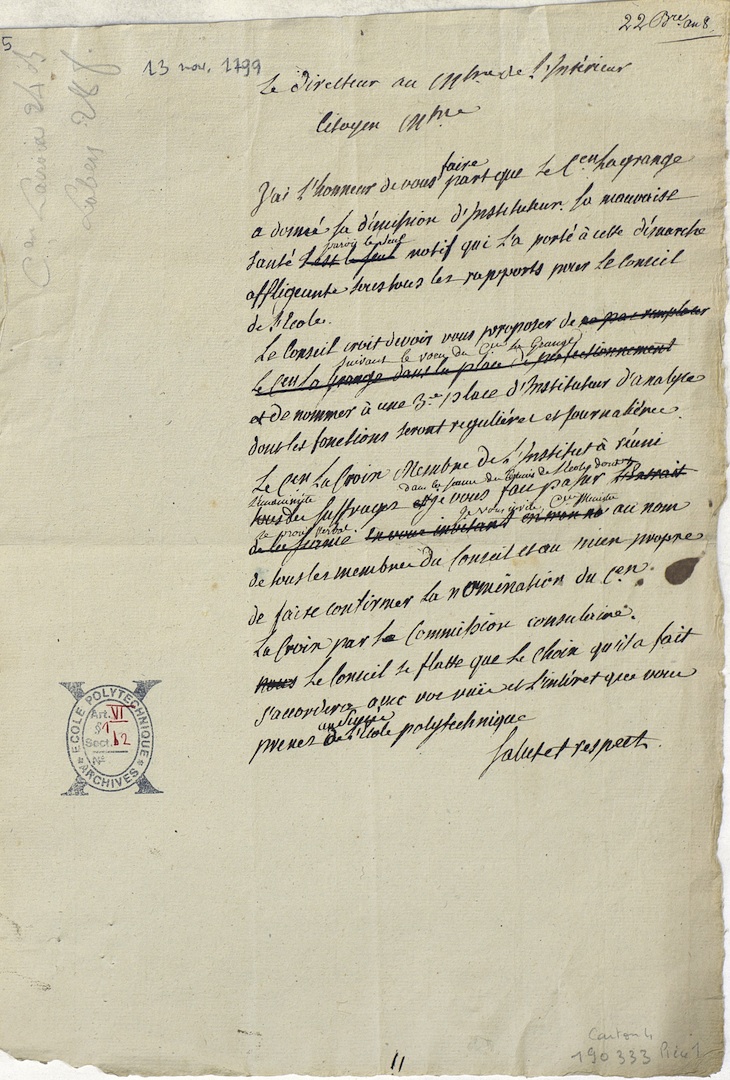 22 Bre an 8
5
13 nov. 1799
Le Directeur au Mtre de l'Intérieur
Citoyen Mtre
faire
J'ai l'honneur de vous part que le Cen Lagrange
a donné sa démission d'Instituteur. Sa mauvaise
paroit le seul
santé est le seul motif qui l'a porté à cette démarche
affligeante sous tous les rapports pour le Conseil
de l'Ecole.
Le Conseil croit devoir vous proposer de ne pas remplacer
suivant le voeu du Cen La Grange
le Cen La Grange dans la place de perfectionnement
et de nommer à une 3e place d'Instituteur d'analyse
dont les fonctions seront regulières et journalières.
Le Cen La Croix Membre de L'Institut à réuni
l'unanimité dans la séance du Conseil de l'Ecole dont
tous des suffrages et je vous fais passer l'Extrait
le procès verbal. Je vous invite, Cen Ministre
de la séance. en vous invitant en mon no au nom
de tous les membres du Conseil et au mien propre
de faire confirmer la nomination du Cen
La Croix par la Commission consulaire.
nous Le Conseil se flatte que le choix qu'il a fait
s'accordera avec vos vues et l'intérêt que vous
au Succès
prenez de l'Ecole polytechnique
Salut et respect.
ECOLE POLYTECHNIQUE
Art. VI
§ 1
Sect. 2
No
ARCHIVES
11
Carton 4
190333 Pièce 1